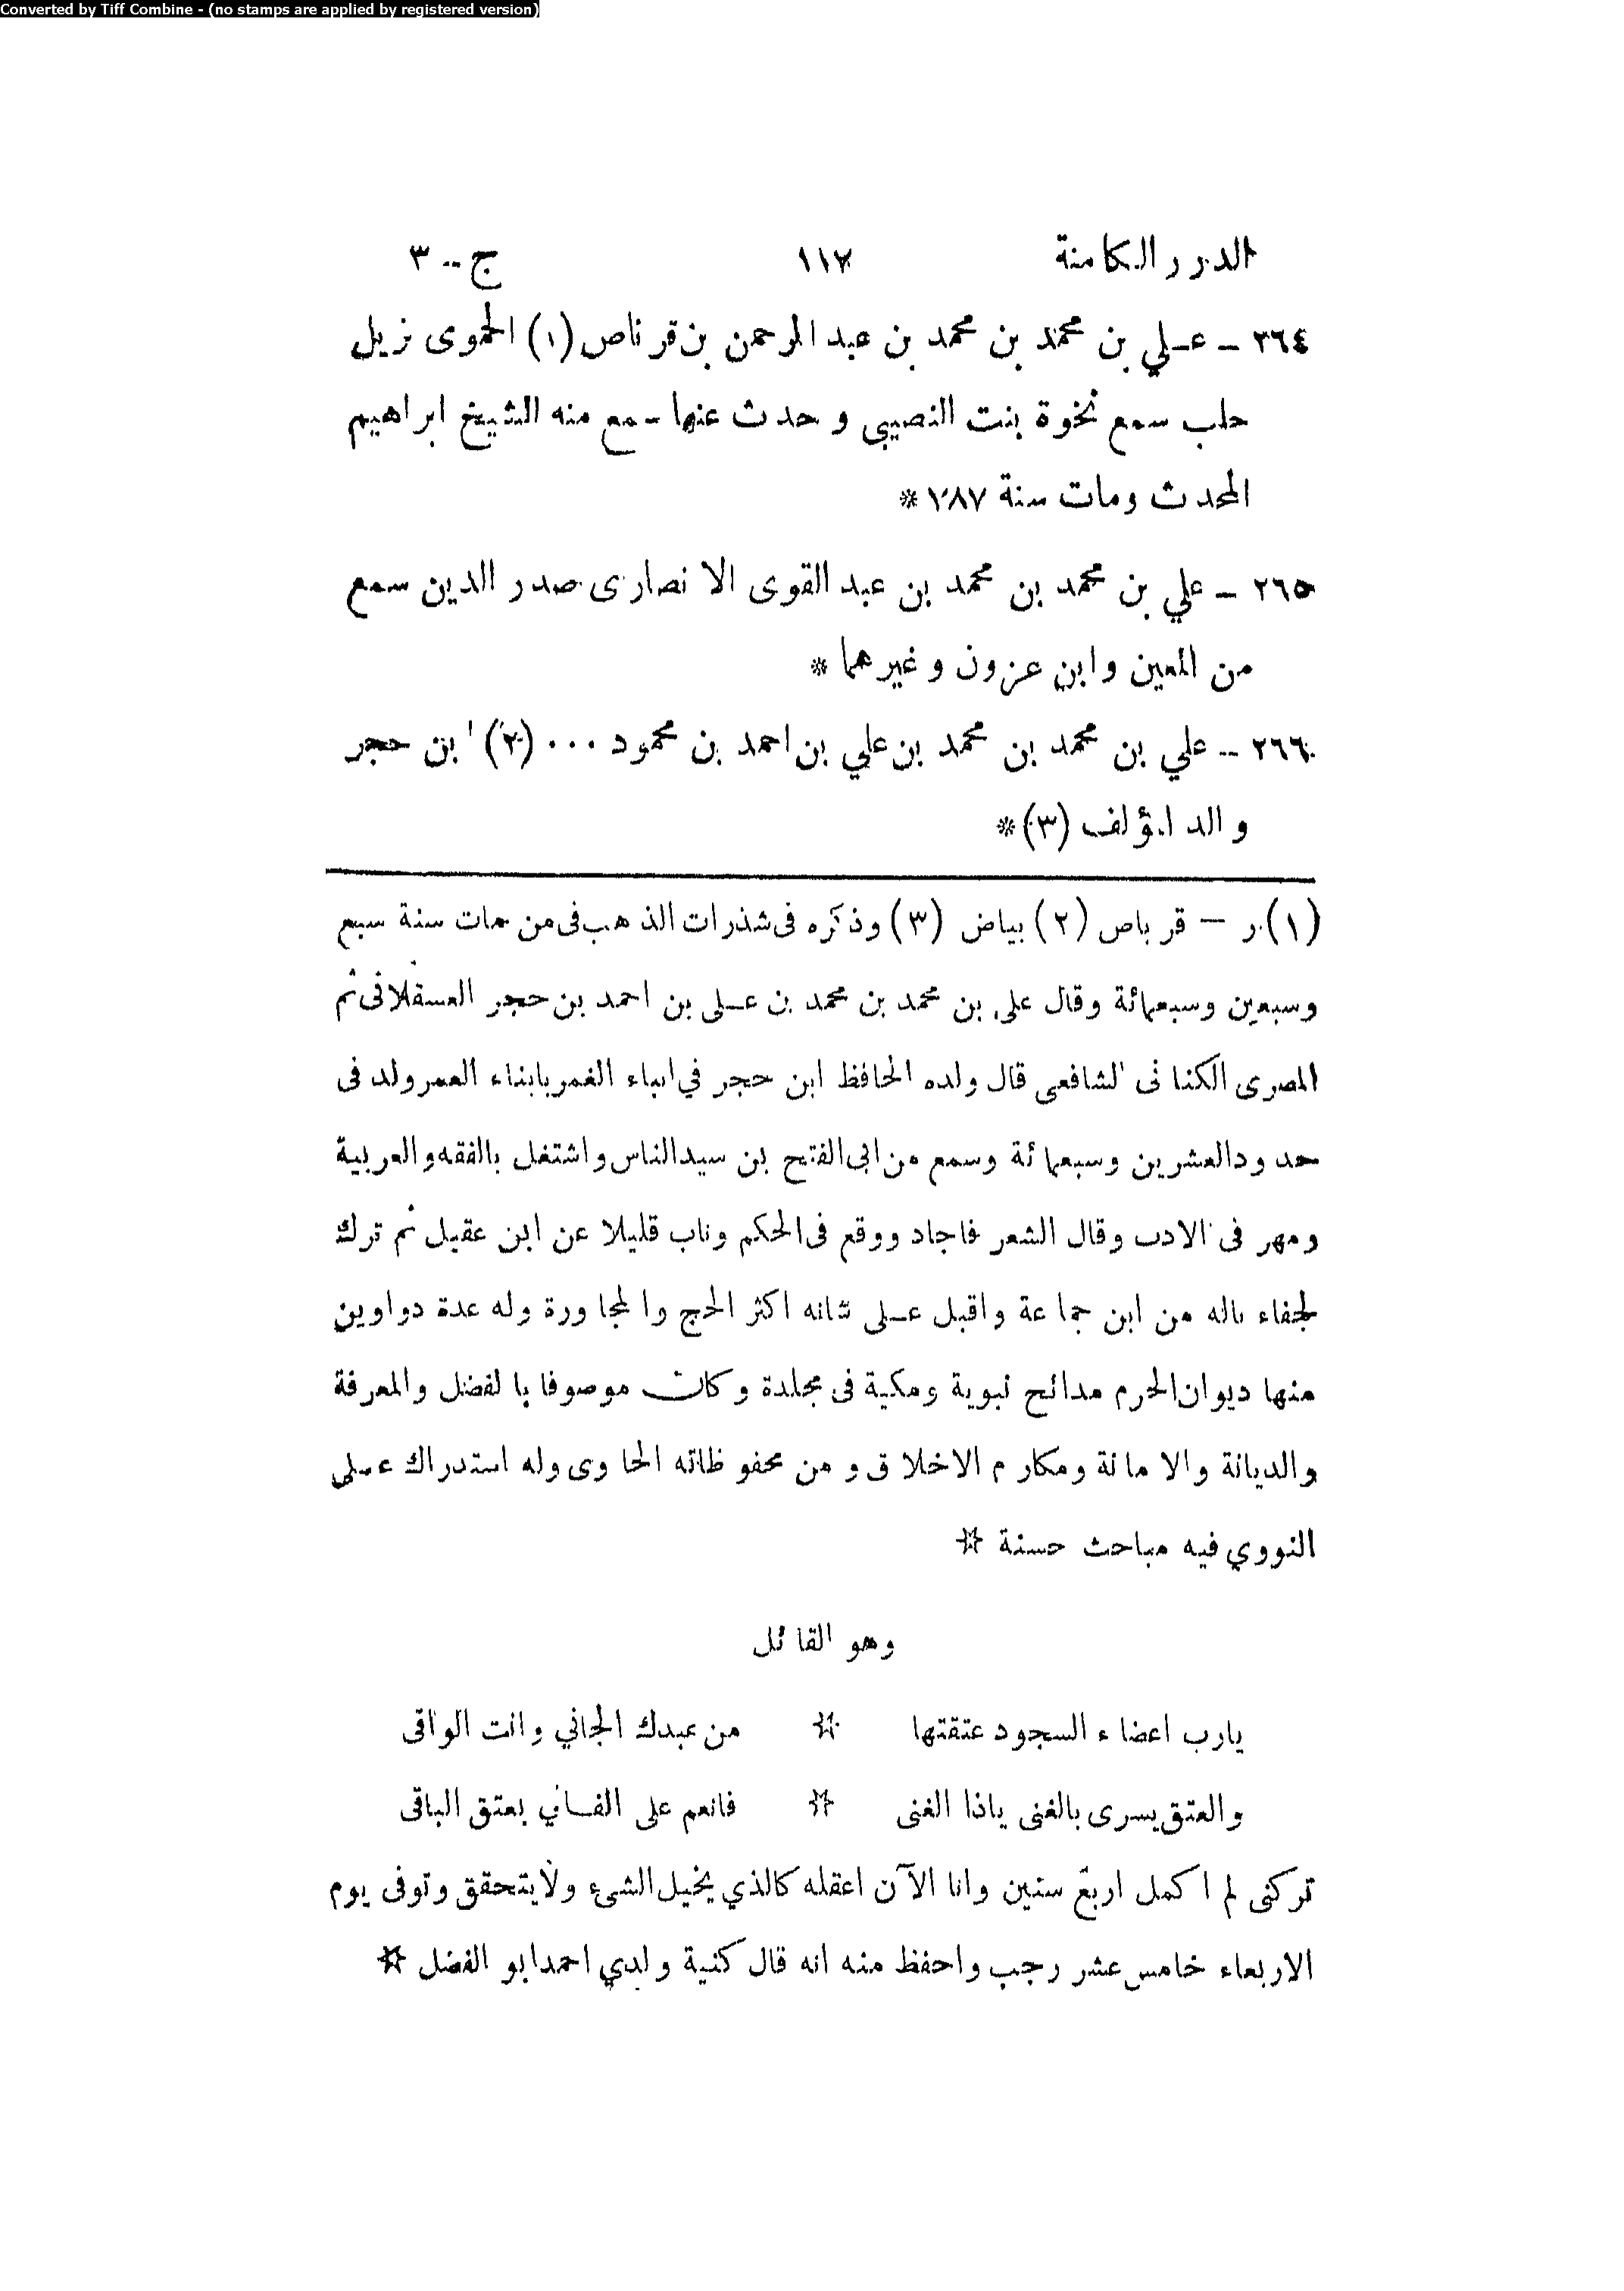 Converted by Tiff Combine - (no stamps are applied by registered version)
الدرر الكامنة ١١٧ ج - ٣
٢٦٤ - علي بن محمد بن محمد بن عبد الرحمن بن قرناص (١) الحموى نزيل
حلب سمع نخوة بنت النصيبي وحدث عنها سمع منه الشيخ ابراهيم
المحدث ومات سنة ٧٨٧ *
٢٦٥ - علي بن محمد بن محمد بن عبد القوى الانصارى صدر الدين سمع
من المعين وابن عزون وغيرهما *
٢٦٦ - علي بن محمد بن محمد بن علي بن احمد بن محمود ... (٢) ابن حجر
والد المؤلف (٣) *
(١) ر — قرباص (٢) بياض (٣) وذكره فى شذرات الذهب فى من مات سنة سبع
وسبعين وسبعمائة وقال على بن محمد بن محمد بن على بن احمد بن حجر العسقلانى ثم
المصرى الكنانى الشافعى قال ولده الحافظ ابن حجر في انباء الغمر بابناء العمر ولد فى
حدود العشرين وسبعمائة وسمع من ابى الفتح بن سيد الناس واشتغل بالفقه والعربية
ومهر فى الادب وقال الشعر فاجاد ووقع فى الحكم وناب قليلا عن ابن عقيل ثم ترك
لجفاء ناله من ابن جماعة واقبل على شانه اكثر الحج والمجاورة وله عدة دواوين
منها ديوان الحرم مدائح نبوية ومكية فى مجلدة وكان موصوفا بالفضل والمعرفة
والديانة والامانة ومكارم الاخلاق و من محفوظاته الحاوى وله استدراك على
النووي فيه مباحث حسنة ☆
وهو القائل
يارب اعضاء السجود عتقتها ☆ من عبدك الجاني وانت الواقى
والعتق يسرى بالغنى ياذا الغنى ☆ فانعم على الفاني بعتق الباقى
تركنى لم اكمل اربع سنين وانا الآن اعقله كالذي يخيل الشىء ولا يتحقق وتوفى يوم
الاربعاء خامس عشر رجب واحفظ منه انه قال كنية ولدي احمد ابو الفضل ☆